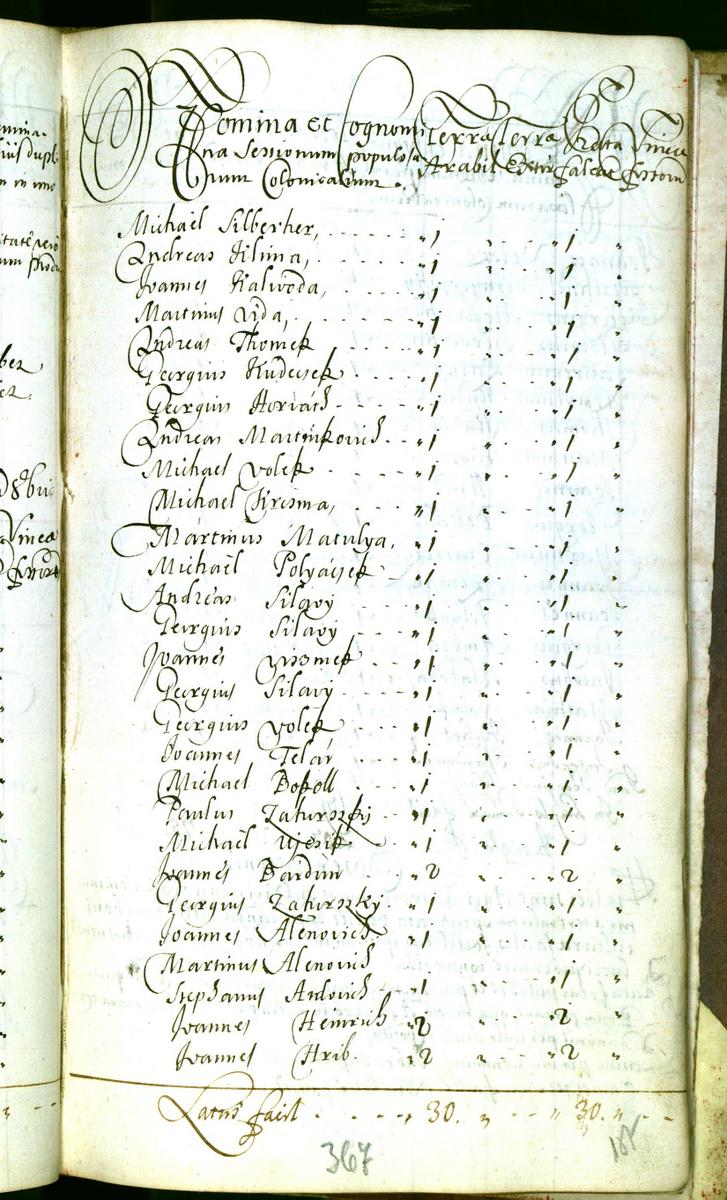 Nomina et Cognomi Terra Terra Rata Vinea
na Sessionum populosa Arabil Falcat Fossor
rum Colonicalium.
Michael Silberher, „1 „ „1 „
Andreas Klima, „1 „ „1 „
Joannes Kalwoda, „1 „ „1 „
Martinus Vida, „1 „ „1 „
Andreas Thomek „1 „ „1 „
Georgius Kudecsek „1 „ „1 „
Georgius Horváth „1 „ „1 „
Andreas Martinkovich „1 „ „1 „
Michael Volek „1 „ „1 „
Michael Kresma, „1 „ „1 „
Martinus Matulya, „1 „ „1 „
Michael Polyácsek „1 „ „1 „
Andreas Silavy „1 „ „1 „
Georgius Silavy „1 „ „1 „
Joannes „1 „ „1 „
Georgius Silavy „1 „ „1 „
Georgius Volek „1 „ „1 „
Joannes Telár „1 „ „1 „
Michael Bokoll „1 „ „1 „
Paulus Zaturszky „1 „ „1 „
Michael Ujesik „1 „ „1 „
Joannes Bardun „2 „ „2 „
Georgius Zaturszky „1 „ „1 „
Joannes Alenovich „1 „ „1 „
Martinus Alenovich
Stephanus Antovich „1 „ „1 „
Joannes Heinrich „2 „ „2 „
Joannes Hrib. „2 „ „2 „
Latus facit „ 30. „ „ 30. „
367